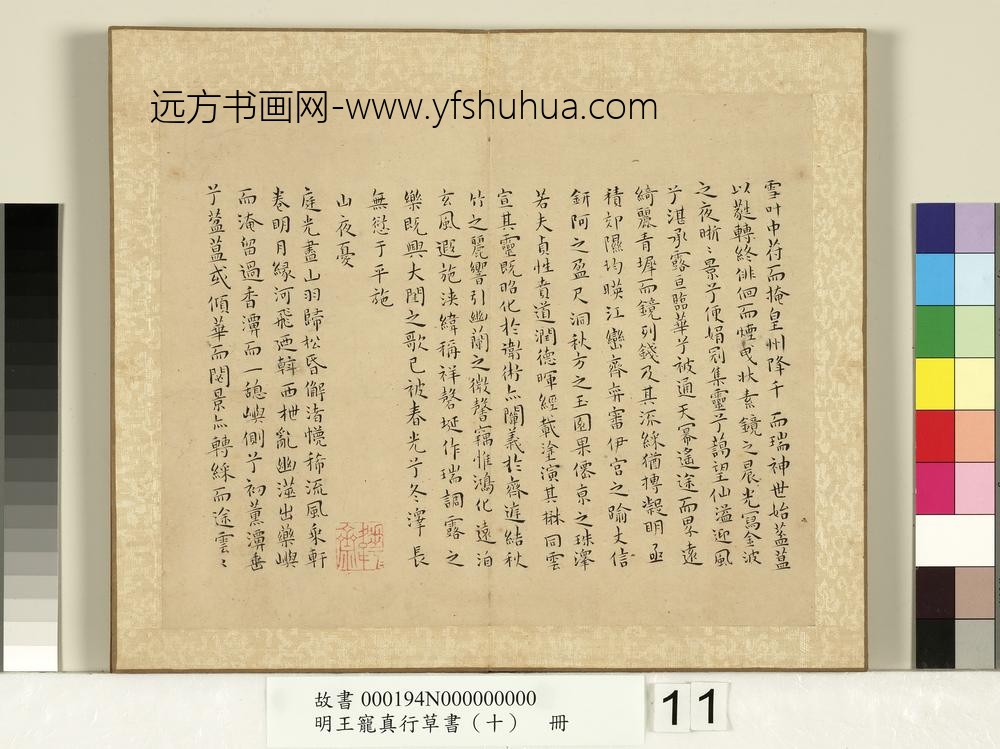 远方书画网-www.yfshuhua.com
雪叶中符而掩皇州降千 而瑞神世始蓋藹
以蕤轉終徘徊而煙曳状素鏡之晨光寫金波
之夜晰〻景兮便娟冠集靈兮藹望仙溢迎風
兮湛承露亘臨華兮被通天冪遙途而畢遠
綺麗青墀而鏡列錢及其流綵猶摶凝明亟
積郊隰均暎江巒齊弃審伊宮之踰丈信
鈃阿之盈尺洞秋方之玉園果儒京之珠澤
若夫貞性賁道潤德暉經載塗演其 同雲
宣其靈既昭化於衢術亦闡義於齊遊結秋
竹之麗響引幽蘭之微馨竊惟鴻化遠泊
玄風遐施浹緯稱祥磬埏作瑞調露之
樂既興大閏之歌已被春光兮冬澤長
無愆于平施
山夜憂
庭光盡山羽歸松昏僻渚懷稀流風乘軒
卷明月緣河飛迺斡西枻亂幽澨出藥嶼
而淹留過香潭而一憩嶼側兮初薰潭垂
兮葢蒀或傾華而閟景亦轉綵而途雲〻
故書 000194N000000000
明王寵真行草書（十） 冊
11